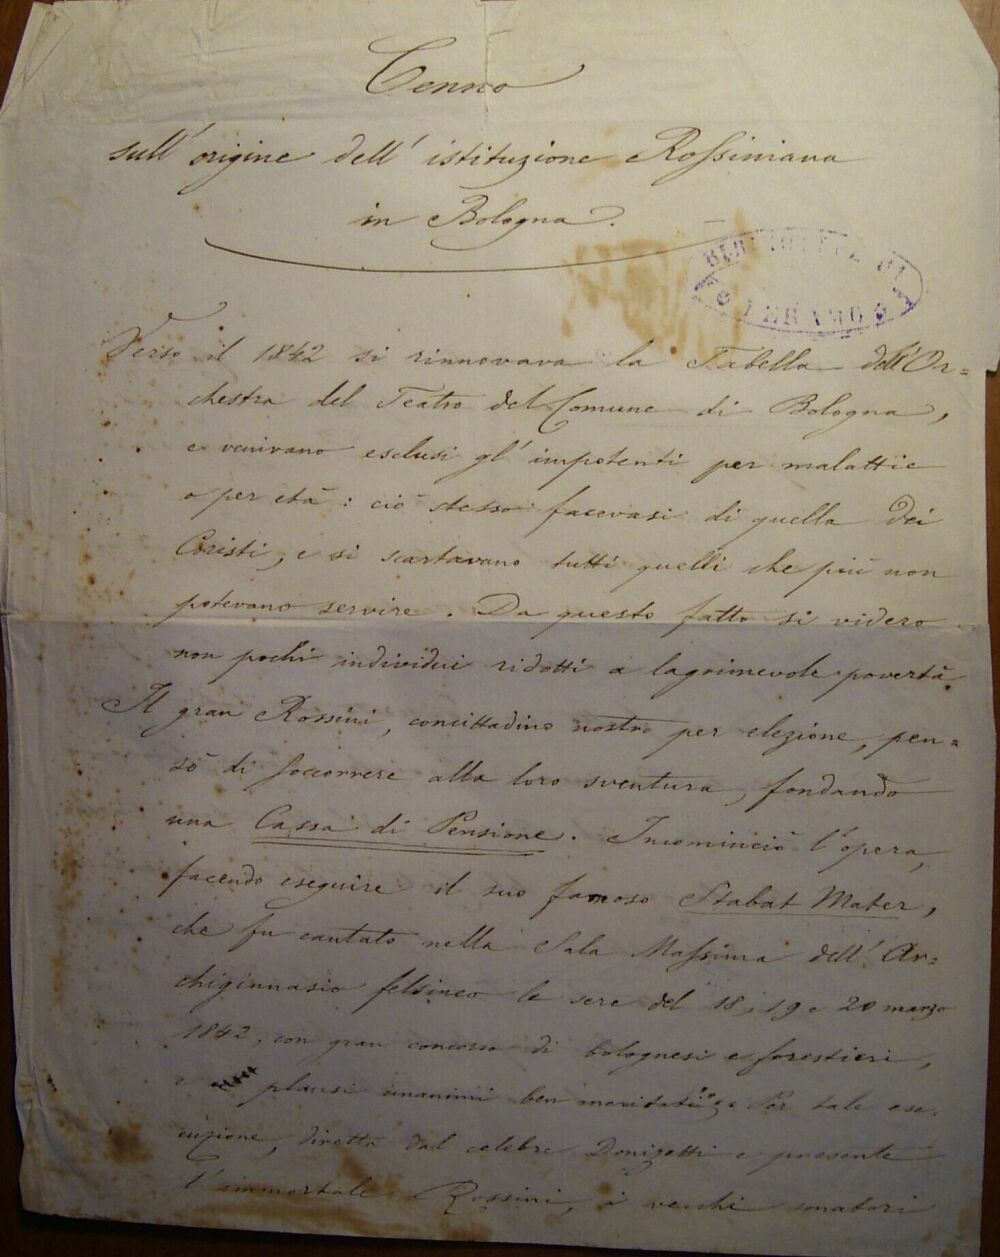 Cenno
sull' origine dell' istituzione Rossiniana
in Bologna.
BIBLIOTECA DI
TERAMO
Verso il 1842 si rinnovava la Tabella dell'Or=
chestra del Teatro del Comune di Bologna,
e venivano esclusi gl' impotenti per malattie
o per età: ciò stesso facevasi di quella dei
Coristi, e si scartavano tutti quelli che più non
potevano servire. Da questo fatto si videro
non pochi individui ridotti a lagrimevole povertà.
Il gran Rossini, concittadino nostro per elezione, pen=
sò di soccorrere alla loro sventura, fondando
una Cassa di Pensione. Incominciò l'opera,
facendo eseguire il suo famoso Stabat Mater,
che fu cantato nella Sala Massima dell' Ar=
chiginnasio felsineo le sere del 18, 19 e 20 marzo
1842, con gran concorso di bolognesi e forestieri,
e plausi unanimi ben meritati. Per tale ese=
cuzione, diretta dal celebre Donizetti e presente
l'immortale Rossini, i vecchi sonatori